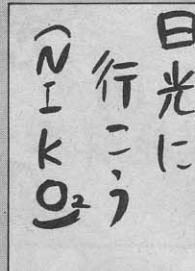 日光に
行こう
(NIKO₂